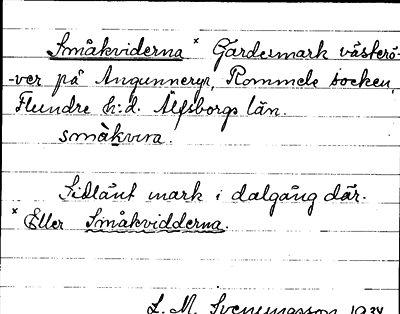 Småkviderna × Gärdesmark västerö-
-ver på Angunneryr, Rommele socken,
Flundre h:d. Älfsborgs län.
småkvıra.
Sidlänt mark i dalgång där.
× Eller Småkvidderna.
L. M. Svenungsson 1934